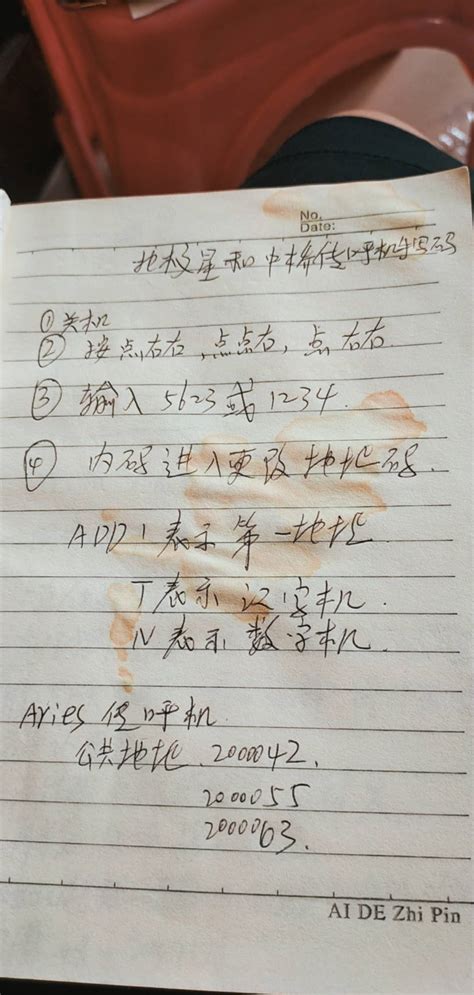 No.
Date:
北极星和中桥传呼机写码
①关机
② 按点右右,点点右,点右右
③ 输入5623或1234.
④ 内码进入更改地址码.
ADD1表示第一地址
T表示汉字机.
N表示数字机.
Aries传呼机.
公共地址.2000042.
2000055
2000063.
AI DE Zhi Pin